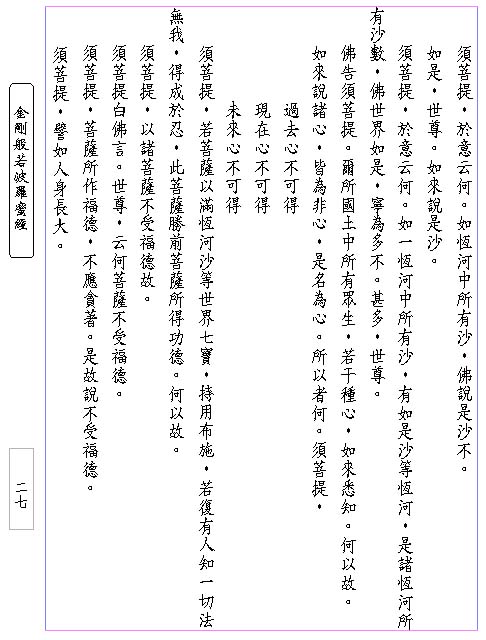 須菩提，於意云何。如恆河中所有沙，佛說是沙不。
如是，世尊。如來說是沙。
須菩提，於意云何。如一恆河中所有沙，有如是沙等恆河，是諸恆河所
有沙數，佛世界如是，寧為多不。甚多，世尊。
佛告須菩提。爾所國土中所有眾生，若干種心，如來悉知。何以故。
如來說諸心，皆為非心，是名為心。所以者何。須菩提，
過去心不可得
現在心不可得
未來心不可得
須菩提，若菩薩以滿恆河沙等世界七寶，持用布施，若復有人知一切法
無我，得成於忍，此菩薩勝前菩薩所得功德。何以故。
須菩提，以諸菩薩不受福德故。
須菩提白佛言。世尊，云何菩薩不受福德。
須菩提，菩薩所作福德，不應貪著。是故說不受福德。
須菩提，譬如人身長大。
金剛般若波羅蜜經
二七